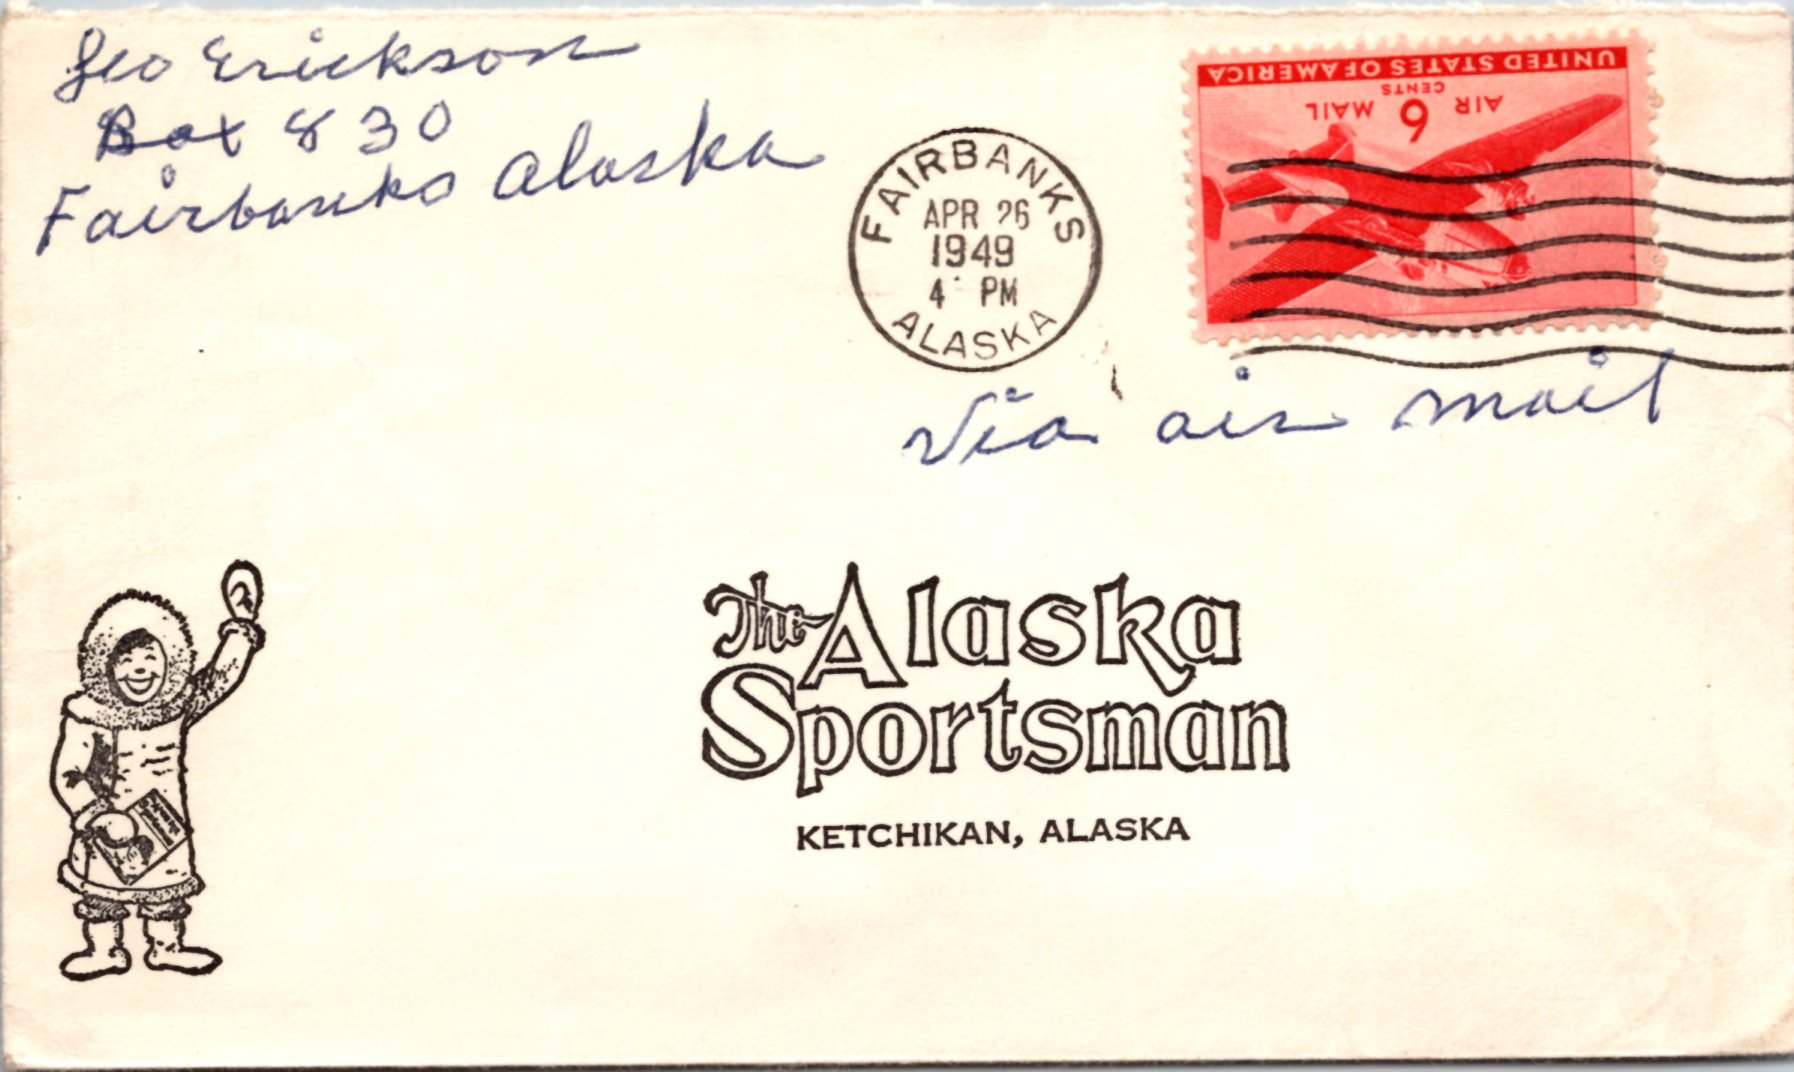 Geo Erickson
Box 830
Fairbanks Alaska
FAIRBANKS
APR 26
1949
4 PM
ALASKA
UNITED STATES OF AMERICA
6 CENTS
AIR MAIL
Via air mail
The Alaska
Sportsman
KETCHIKAN, ALASKA